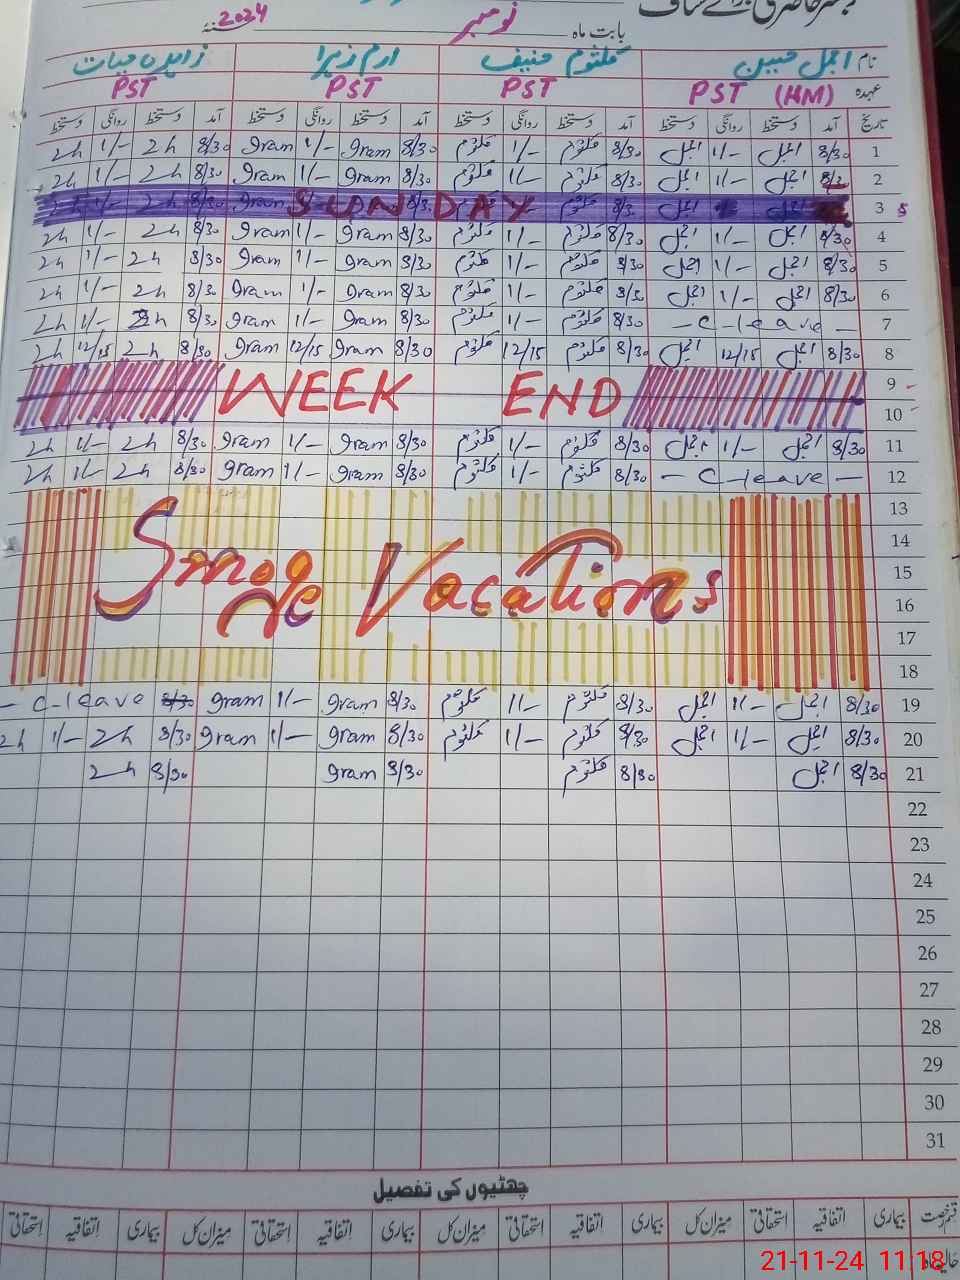 بابت ماہ نومبر 2024
نام اجمل مبین کلثوم حنیف ارم زہرا
عہدہ PST (HM) PST PST PST
تاریخ آمد دستخط روانگی دستخط آمد دستخط روانگی دستخط آمد دستخط روانگی دستخط آمد دستخط روانگی دستخط
1 8/30 اجمل 1/- اجمل 8/30 کلثوم 1/- کلثوم 8/30 gram 1/- gram 8/30 2h 1/- 2h
2 اجمل 1/- اجمل 8/30 کلثوم 1/- کلثوم 8/30 gram 1/- gram 8/30 2h 1/- 2h
3 SUNDAY
4 8/30 اجمل 1/- اجمل 8/30 کلثوم 1/- کلثوم 8/30 gram 1/- gram 8/30 2h 1/- 2h
5 8/30 اجمل 1/- اجمل 8/30 کلثوم 1/- کلثوم 8/30 gram 1/- gram 8/30 2h 1/- 2h
6 8/30 اجمل 1/- اجمل 8/30 کلثوم 1/- کلثوم 8/30 gram 1/- gram 8/30 2h 1/- 2h
7 - C-leave - 8/30 کلثوم 1/- کلثوم 8/30 gram 1/- gram 8/30 2h 1/- 2h
8 8/30 اجمل 12/15 اجمل 8/30 کلثوم 12/15 کلثوم 8/30 gram 12/15 gram 8/30 2h 12/15 2h
9 WEEK END
10
11 8/30 اجمل 1/- اجمل 8/30 کلثوم 1/- کلثوم 8/30 gram 1/- gram 8/30 2h 1/- 2h
12 - C-leave - 8/30 کلثوم 1/- کلثوم 8/30 gram 1/- gram 8/30 2h 1/- 2h
13
14
15 Smog Vacations
16
17
18
19 8/30 اجمل 1/- اجمل 8/30 کلثوم 1/- کلثوم 8/30 gram 1/- gram 8/30 - C-leave -
20 8/30 اجمل 1/- اجمل 8/30 کلثوم 1/- کلثوم 8/30 gram 1/- gram 8/30 2h 1/- 2h
21 8/30 اجمل 8/30 کلثوم 8/30 gram 8/30 2h
22
23
24
25
26
27
28
29
30
31
چھٹیوں کی تفصیل
قسم رخصت بیماری اتفاقیہ استحقاقی میزان کل بیماری اتفاقیہ استحقاقی میزان کل بیماری اتفاقیہ استحقاقی میزان کل بیماری اتفاقیہ استحقاقی
21-11-24 11:18